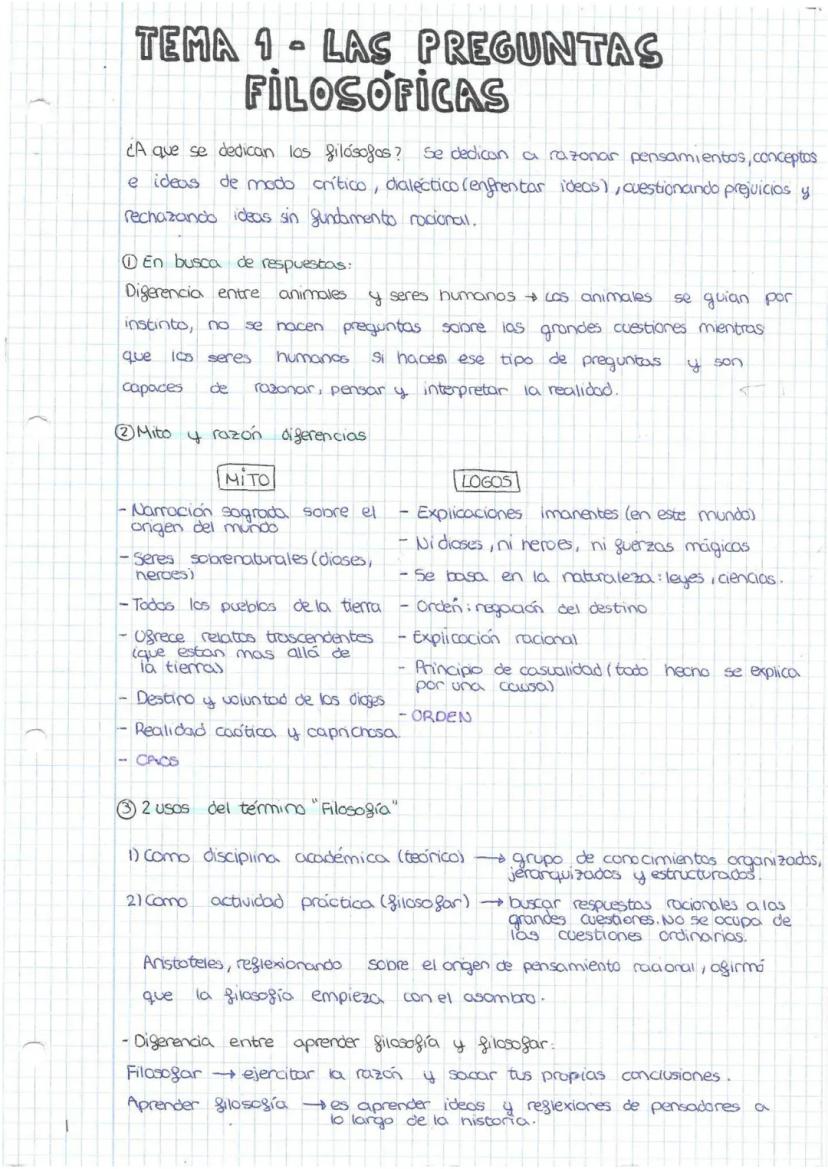 TEMA 1 - LAS PREGUNTAS
FILOSÓFICAS
¿A que se dedican los filósofos? Se dedican a razonar pensamientos, conceptos
e ideas de modo crítico, dialéctico (enfrentar ideas), cuestionando prejuicios y
rechazando ideas sin fundamento racional.
① En busca de respuestas:
Diferencia entre animales y seres humanos → Los animales se guian por
instinto, no se hacen preguntas sobre las grandes cuestiones mientras
que los seres humanos si hacen ese tipo de preguntas y son
capaces de razonar, pensar y interpretar la realidad.
② Mito y razón diferencias
MITO
- Narración sagrada sobre el
origen del mundo
- Seres sobrenaturales (dioses,
heroes)
- Todos los pueblos de la tierra
- Ofrece relatos trascendentes
(que estan mas allá de
la tierra)
- Destino y voluntad de los dioses
- Realidad caótica y caprichosa.
- CAOS
LOGOS
- Explicaciones imanentes (en este mundo)
- Ni dioses, ni heroes, ni fuerzas mágicas
- Se basa en la naturaleza: leyes, ciencias.
- Orden: negación del destino
- Explicación racional
- Principio de casualidad (todo hecho se explica
por una causa)
- ORDEN
③ 2 usos del término "Filosofía"
1) Como disciplina académica (teórico) → grupo de conocimientos organizados,
jerarquizados y estructurados.
2) Como actividad práctica (filosofar) → buscar respuestas racionales a las
grandes cuestiones. No se ocupa de
las cuestiones ordinarias.
Aristoteles, reflexionando sobre el origen de pensamiento racional, afirmó
que la filosofía empieza con el asombro.
- Diferencia entre aprender filosofía y filosofar:
Filosofar → ejercitar la razón y sacar tus propias conclusiones.
Aprender filosofía → es aprender ideas y reflexiones de pensadores a
lo largo de la historia.
1